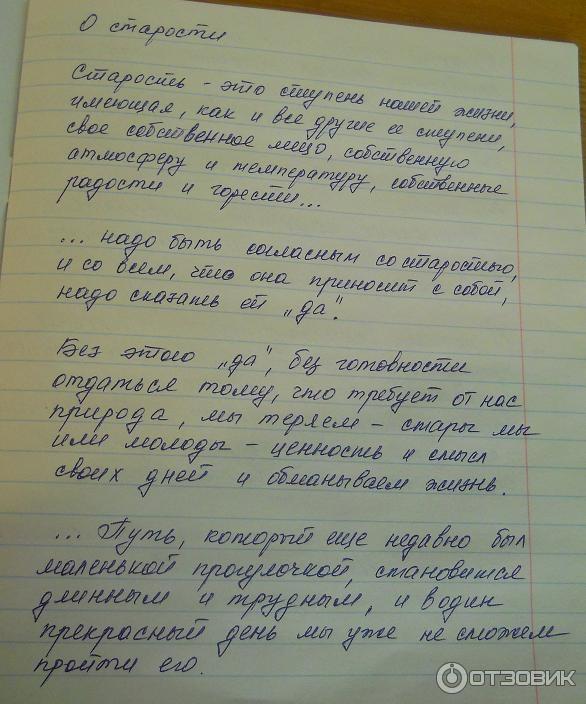 О старости
Старость - это ступень нашей жизни,
имеющая, как и все другие ее ступени,
свое собственное лицо, собственную
атмосферу и температуру, собственные
радости и горести...
... надо быть согласным со старостью,
и со всем, что она приносит с собой,
надо сказать ей „да".
Без этого „да", без готовности
отдаться тому, что требует от нас
природа, мы теряем - стары мы
или молоды - ценность и смысл
своих дней и обманываем жизнь.
... Путь, который еще недавно был
маленькой прогулочкой, становится
длинным и трудным, и в один
прекрасный день мы уже не сможем
пройти его.
ОТЗОВИК